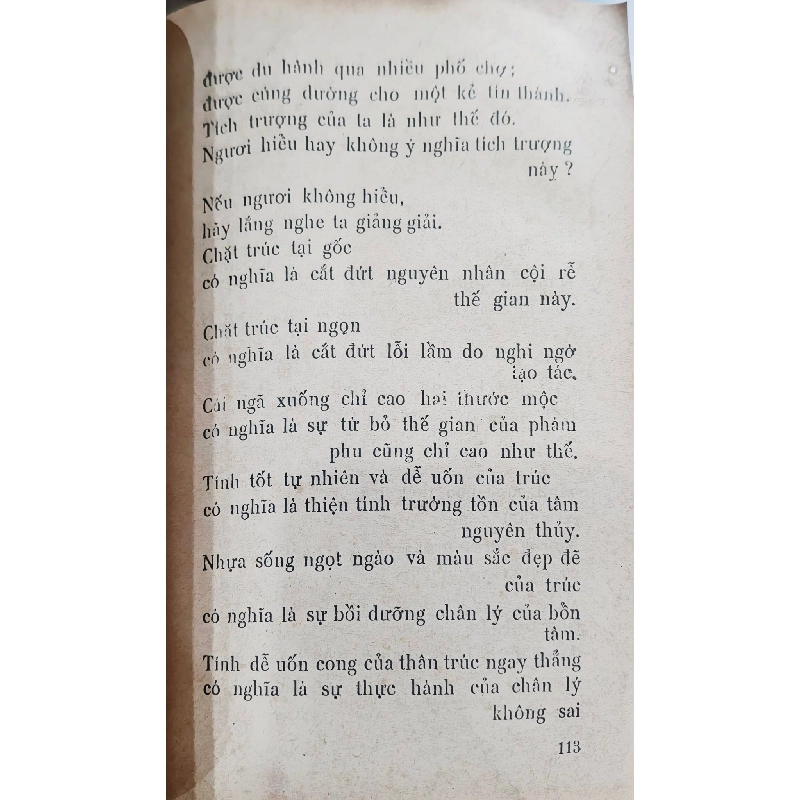 được du hành qua nhiều phố chợ;
được cúng dường cho một kẻ tín thành.
Tích trượng của ta là như thế đó.
Ngươi hiểu hay không ý nghĩa tích trượng
này ?
Nếu ngươi không hiểu,
hãy lắng nghe ta giảng giải.
Chặt trúc tại gốc
có nghĩa là cắt đứt nguyên nhân cội rễ
thế gian này.
Chặt trúc tại ngọn
có nghĩa là cắt đứt lỗi lầm do nghi ngờ
tạo tác.
Cái ngã xuống chỉ cao hai thước mộc
có nghĩa là sự từ bỏ thế gian của phàm
phu cũng chỉ cao như thế.
Tính tốt tự nhiên và dễ uốn của trúc
có nghĩa là thiện tính trường tồn của tâm
nguyên thủy.
Nhựa sống ngọt ngào và màu sắc đẹp đẽ
của trúc
có nghĩa là sự bồi dưỡng chân lý của bồn
tâm.
Tính dễ uốn cong của thân trúc ngay thẳng
có nghĩa là sự thực hành của chân lý
không sai
113